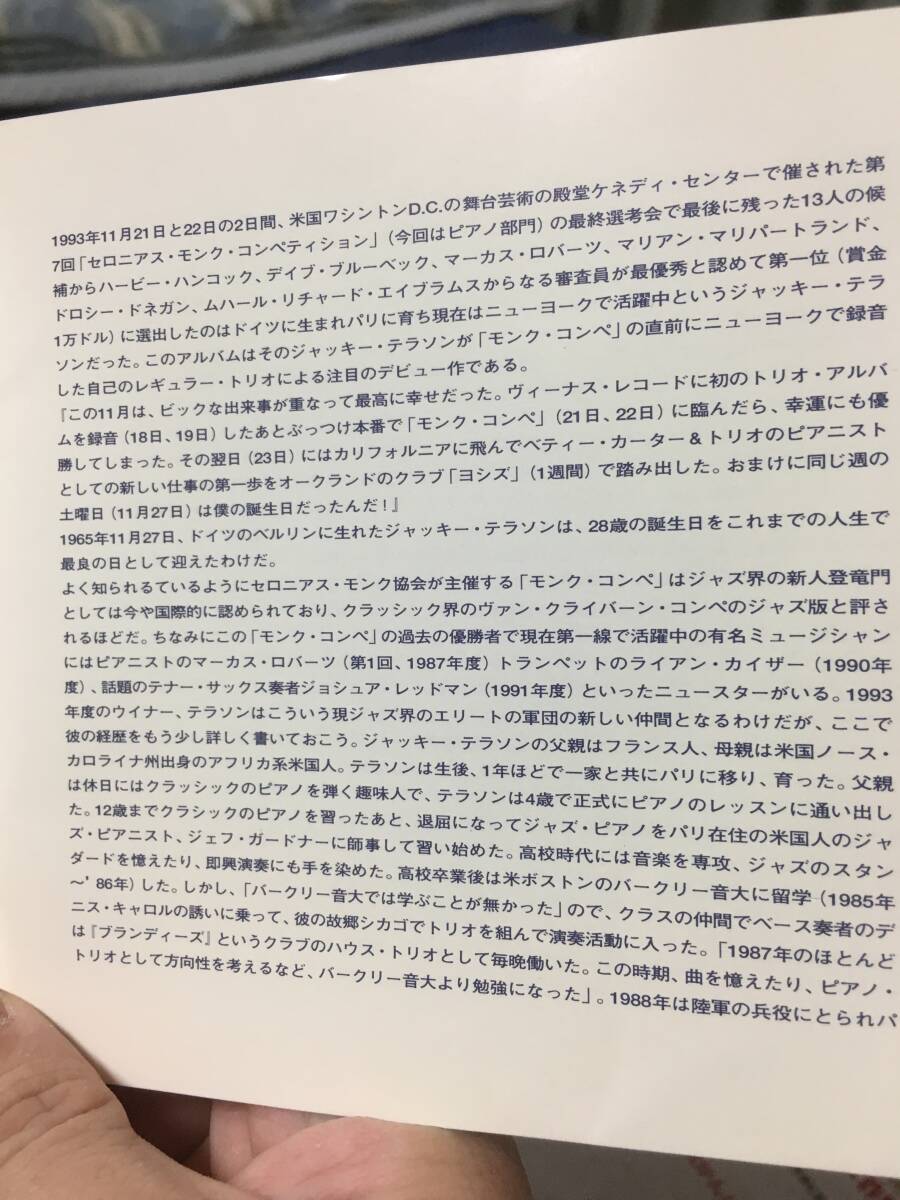 1993年11月21日と22日の2日間、米国ワシントンD.C.の舞台芸術の殿堂ケネディ・センターで催された第
7回「セロニアス・モンク・コンペティション」（今回はピアノ部門）の最終選考会で最後に残った13人の候
補からハービー・ハンコック、デイブ・ブルーベック、マーカス・ロバーツ、マリアン・マリパートランド、
ドロシー・ドネガン、ムハール・リチャード・エイブラムスからなる審査員が最優秀と認めて第一位（賞金
1万ドル）に選出したのはドイツに生まれパリに育ち現在はニューヨークで活躍中というジャッキー・テラ
ソンだった。このアルバムはそのジャッキー・テラソンが「モンク・コンペ」の直前にニューヨークで録音
した自己のレギュラー・トリオによる注目のデビュー作である。
『この11月は、ビックな出来事が重なって最高に幸せだった。ヴィーナス・レコードに初のトリオ・アルバ
ムを録音（18日、19日）したあとぶっつけ本番で「モンク・コンペ」（21日、22日）に臨んだら、幸運にも優
勝してしまった。その翌日（23日）にはカリフォルニアに飛んでベティー・カーター＆トリオのピアニスト
としての新しい仕事の第一歩をオークランドのクラブ「ヨシズ」（1週間）で踏み出した。おまけに同じ週の
土曜日（11月27日）は僕の誕生日だったんだ！』
1965年11月27日、ドイツのベルリンに生れたジャッキー・テラソンは、28歳の誕生日をこれまでの人生で
最良の日として迎えたわけだ。
よく知られるているようにセロニアス・モンク協会が主催する「モンク・コンペ」はジャズ界の新人登竜門
としては今や国際的に認められており、クラッシック界のヴァン・クライバーン・コンペのジャズ版と評さ
れるほどだ。ちなみにこの「モンク・コンペ」の過去の優勝者で現在第一線で活躍中の有名ミュージシャン
にはピアニストのマーカス・ロバーツ（第1回、1987年度）トランペットのライアン・カイザー（1990年
度）、話題のテナー・サックス奏者ジョシュア・レッドマン（1991年度）といったニュースターがいる。1993
年度のウイナー、テラソンはこういう現ジャズ界のエリートの軍団の新しい仲間となるわけだが、ここで
彼の経歴をもう少し詳しく書いておこう。ジャッキー・テラソンの父親はフランス人、母親は米国ノース・
カロライナ州出身のアフリカ系米国人。テラソンは生後、1年ほどで一家と共にパリに移り、育った。父親
は休日にはクラッシックのピアノを弾く趣味人で、テラソンは4歳で正式にピアノのレッスンに通い出し
た。12歳までクラシックのピアノを習ったあと、退屈になってジャズ・ピアノをパリ在住の米国人のジャ
ズ・ピアニスト、ジェフ・ガードナーに師事して習い始めた。高校時代には音楽を専攻、ジャズのスタン
ダードを憶えたり、即興演奏にも手を染めた。高校卒業後は米ボストンのバークリー音大に留学（1985年
〜’86年）した。しかし、「バークリー音大では学ぶことが無かった」ので、クラスの仲間でベース奏者のデ
ニス・キャロルの誘いに乗って、彼の故郷シカゴでトリオを組んで演奏活動に入った。「1987年のほとんど
は『ブランディーズ』というクラブのハウス・トリオとして毎晩働いた。この時期、曲を憶えたり、ピアノ・
トリオとして方向性を考えるなど、バークリー音大より勉強になった」。1988年は陸軍の兵役にとられパ